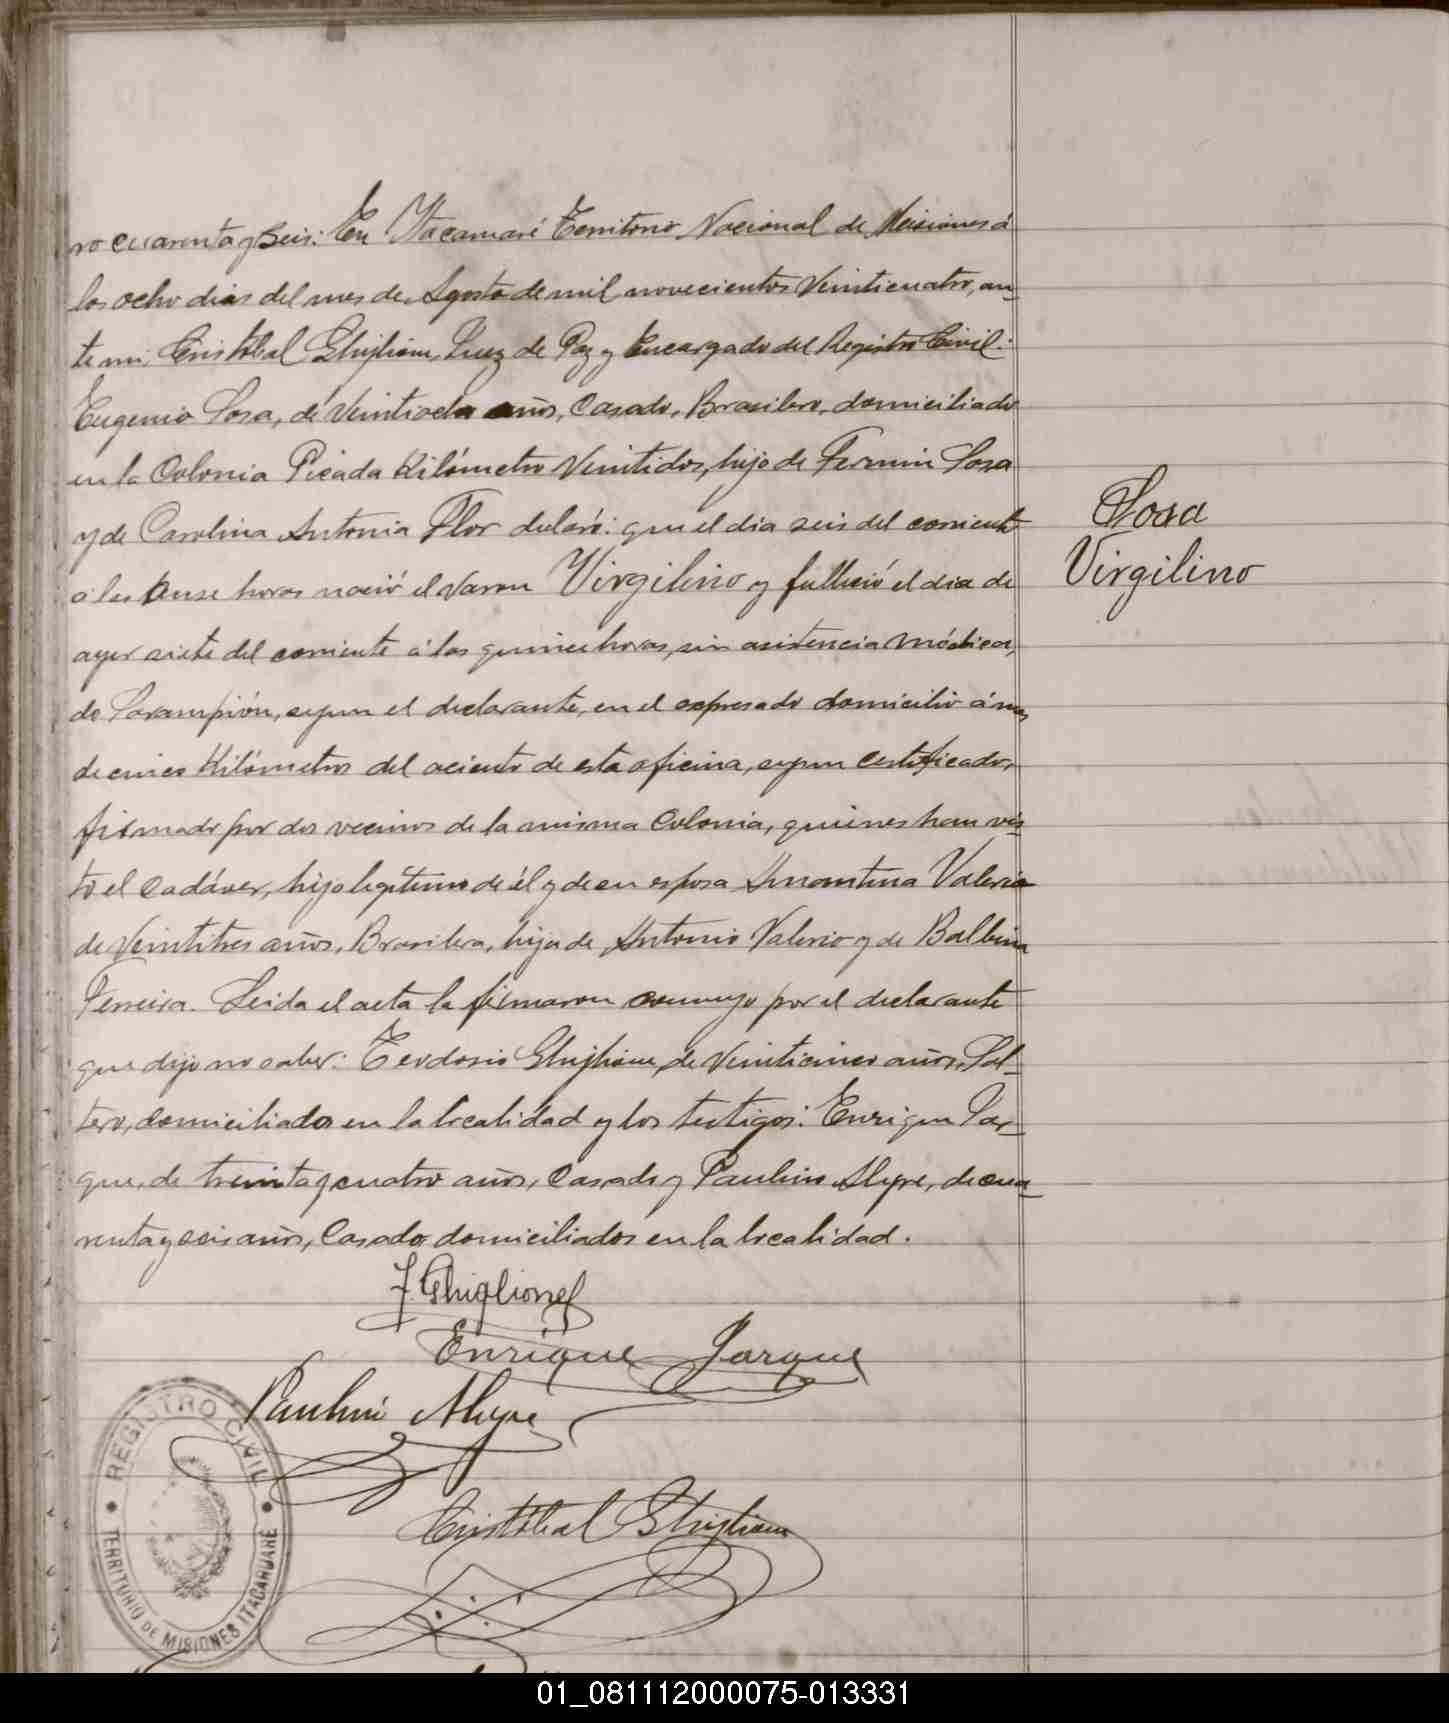 ro cuarenta y Seis: En Itacaruaré Territorio Nacional de Misiones á
los ocho dias del mes de Agosto de mil novecientos Veinticuatro, an-
te mi, Cristóbal Ghiglione, Juez de Paz y Encargado del Registro Civil:
Eugenio Sosa, de Veintiocho años, Casado, Brasilero, domiciliado
en la Colonia Picada Kilómetro Veintidos, hijo de Fermin Sosa
y de Carolina Antonia Flor declaró: que el dia seis del corriente
a las onse horas nació el varon Virgilino y fallició el dia de
ayer siete del corriente á las quince horas, sin asistencia módica,
de Sarampión, segun el declarante, en el expresado domicilio á mas
de cinco Kilómetros del aciento de esta oficina, segun certificado,
firmado por dos vecinos de la misma Colonia, quienes han vis-
to el cadáver, hijo legítimo de él y de su esposa Amantina Valerio
de Veintitres años, Brasilera, hija de Antonio Valerio y de Balbina
Ferreira. Leida el acta la firmaron conmigo por el declarante
que dijo no saber: Teodosio Ghiglione, de Veinticinco años, Sol-
tero, domiciliado en la localidad y los testigos: Enrique Jar-
que, de treinta y cuatro años, Casado y Paulino Alegre, de cua-
renta y seis años, Casado domiciliados en la localidad.
Sosa
Virgilino
T. Ghiglione
Enrique Jarque
Paulino Alegre
Cristóbal Ghiglione
REGISTRO CIVIL
TERRITORIO DE MISIONES ITACARUARE
01_081112000075-013331